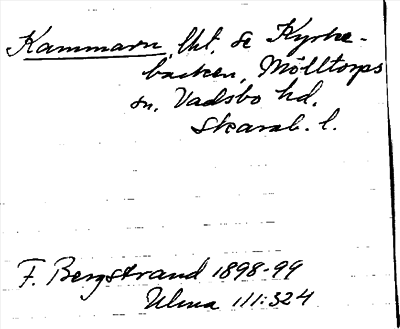 Kammarn, lht. se Kyrke-
backen, Mölltorps
sn, Vadsbo hd,
Skarab. l.
F. Bergstrand 1898-99
Ulma 111:324